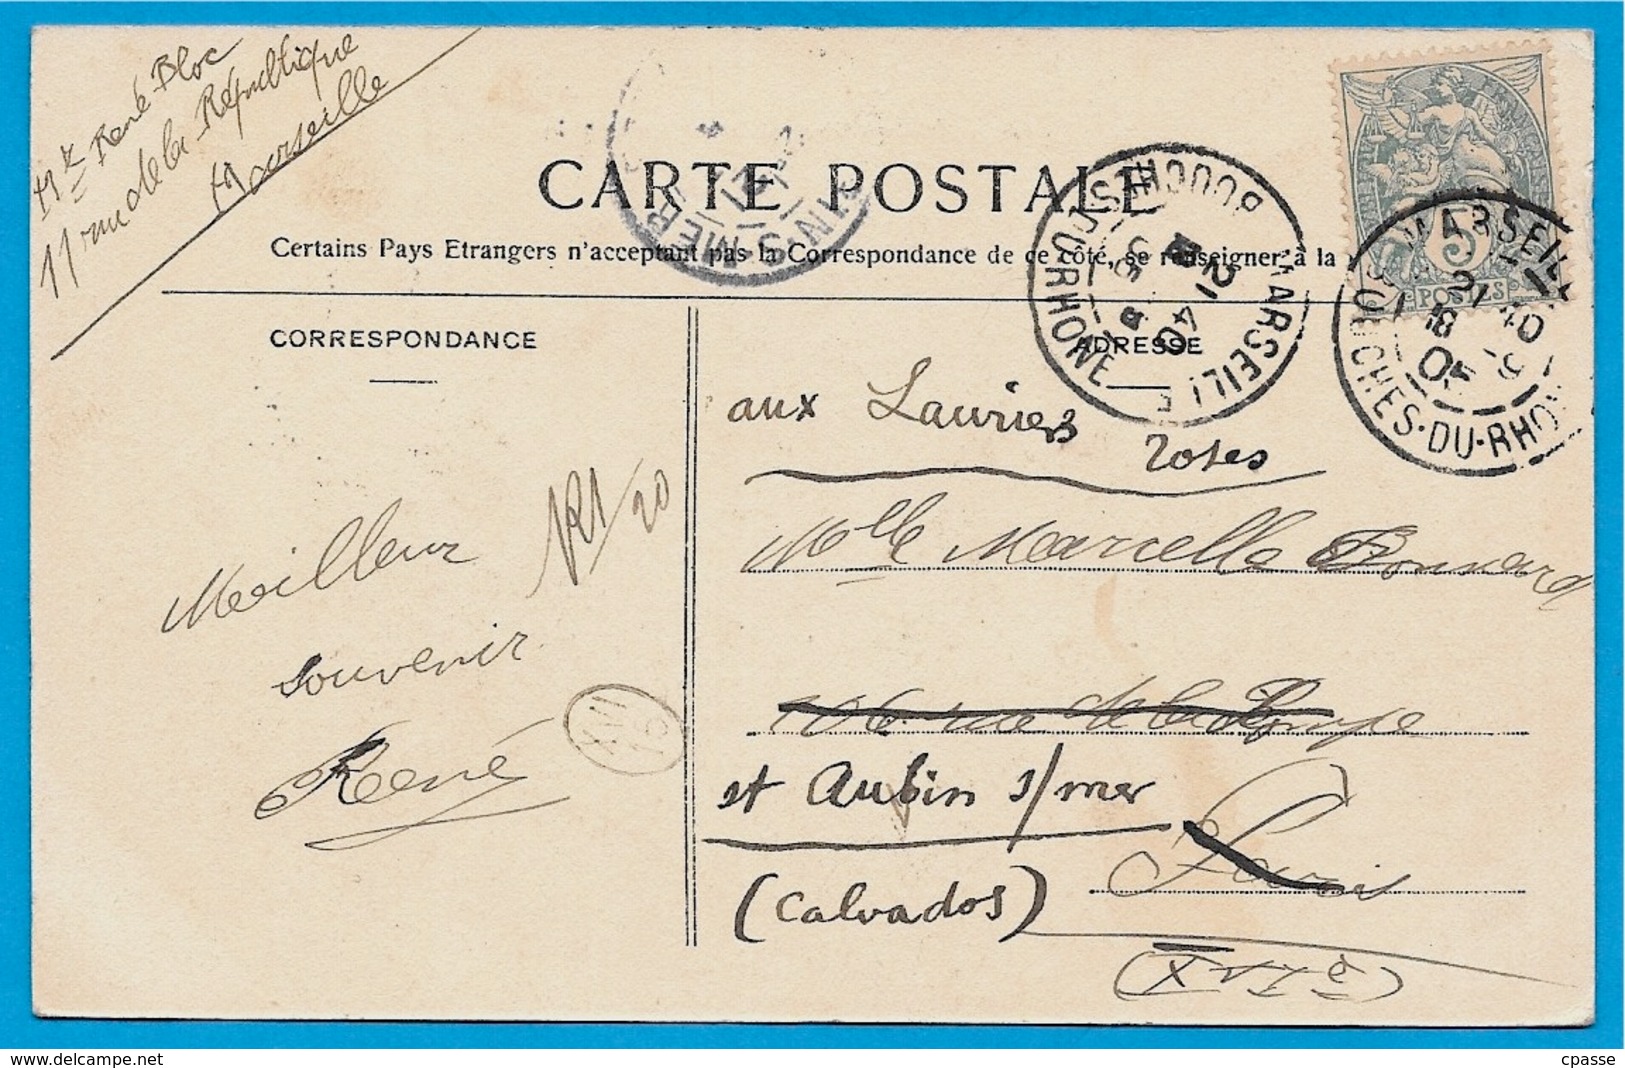 Mr René Bloc
11 rue de la République
Marseille
CARTE POSTALE
Certains Pays Etrangers n'acceptent pas la Correspondance de ce côté, se renseigner à la
CORRESPONDANCE
ADRESSE
MARSEILLE
BOUCHES-DU-RHONE
21 40
MARSEILLE
BOUCHES-DU-RHONE
5
POSTES
aux Lauriers
roses
Mlle Marcelle Bonnard
106 rue de la Pompe
st Aubin s/mer
Paris
(Calvados)
Meilleur
souvenir
René
cpasse